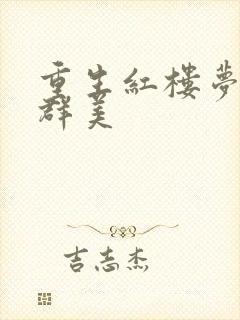 重生紅樓夢
群美
吉志杰